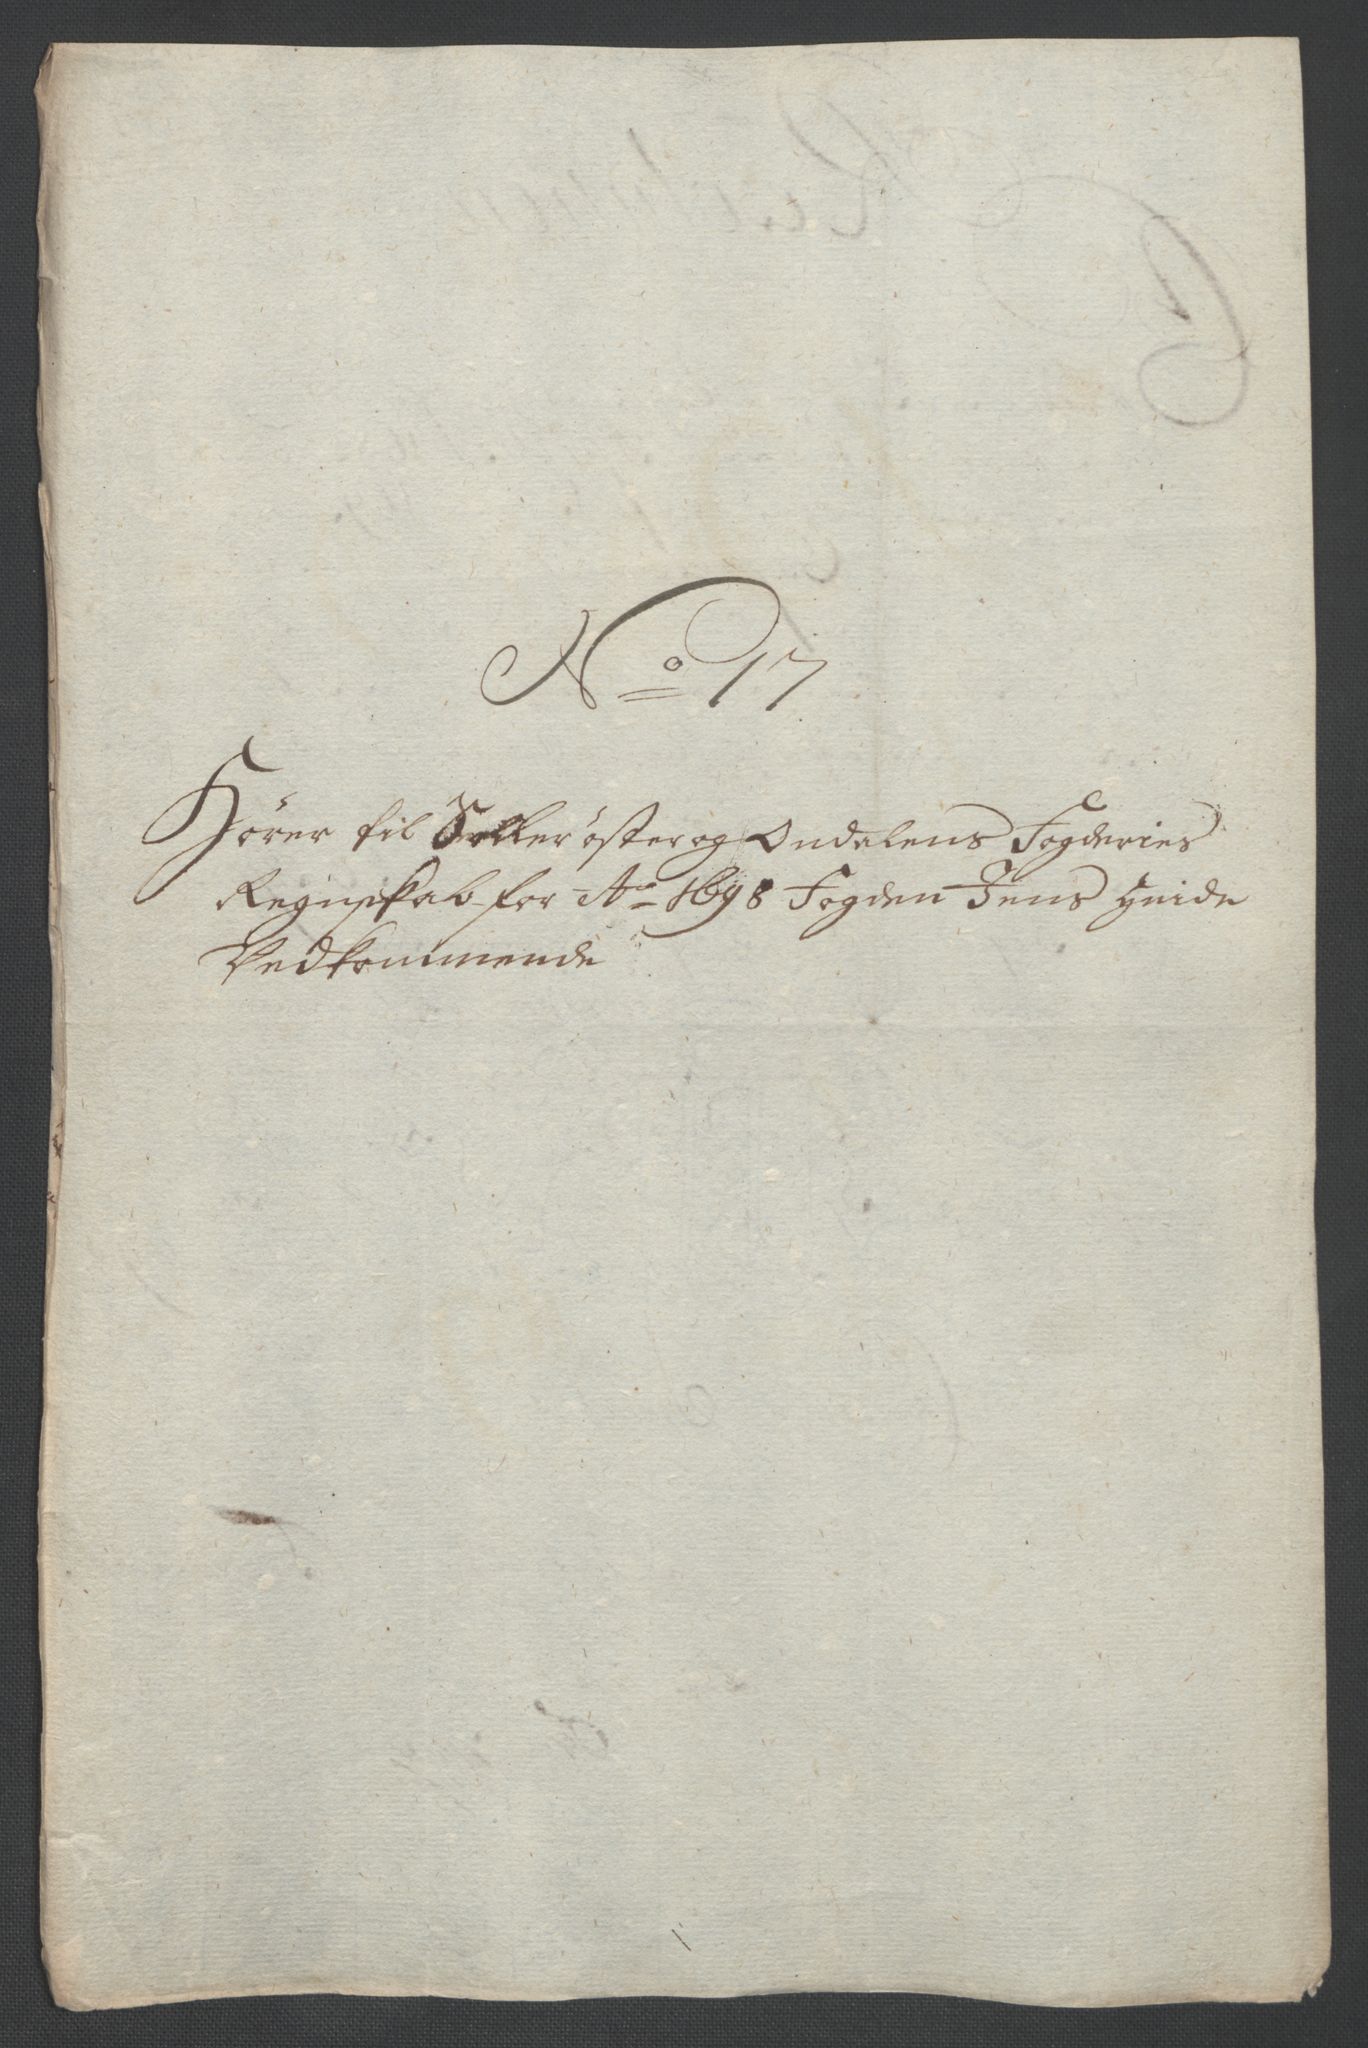 No 17
Hörer til Soller öster og Ondalens Fogderies
Regnskab for Ao 1698 Fogden Jens Heide
Vedkommende